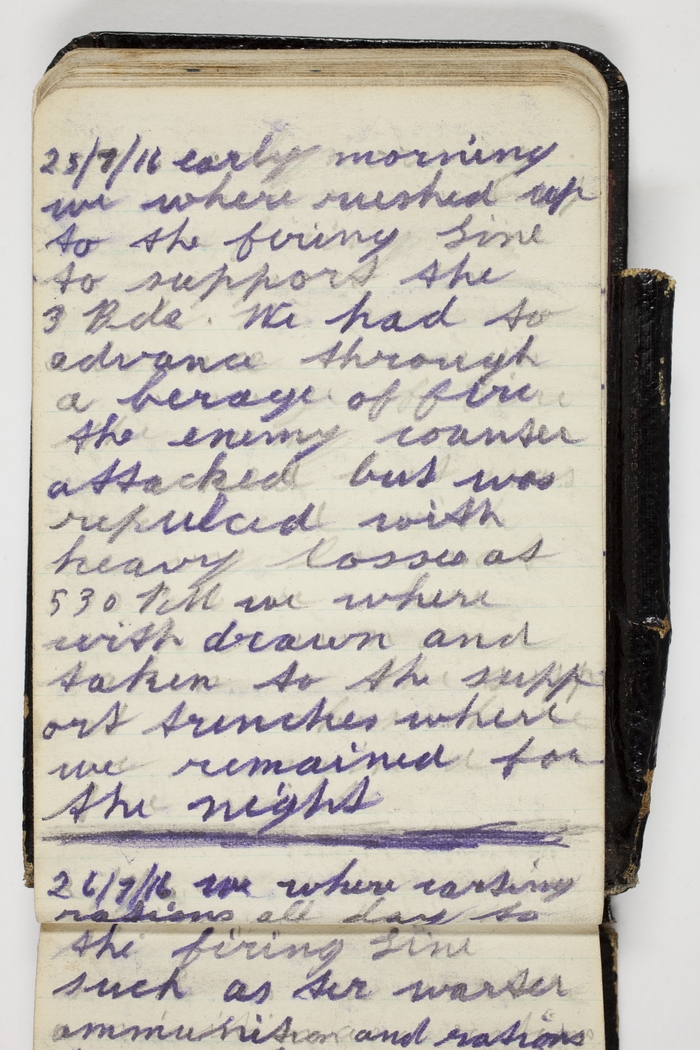 25/7/16 early morning
we where rushed up
to the firing Line
to support the
3 Bde. We had to
advance through
a berage of fire
the enemy counter
attacked but was
repulced with
heavy losses at
530 PM we where
with drawn and
taken to the supp
ort trenches where
we remained for
the night
26/7/16 we where carting
rations all day to
the firing Line
such as ser warter
ammunition and rations